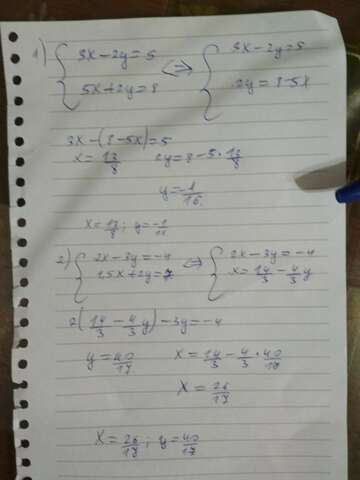 1) { 3x-2y=5 <=> { 3x-2y=5
5x+2y=8 2y=8-5x
3x-(8-5x)=5
x=13/8 2y=8-5·13/8
y=-1/16
x=13/8; y=-1/16
2) { 2x-3y=-4 <=> { 2x-3y=-4
1.5x+2y=7 x=14/3-4/3y
2(14/3-4/3y)-3y=-4
y=40/17 x=14/3-4/3·40/17
x=26/17
x=26/17; y=40/17